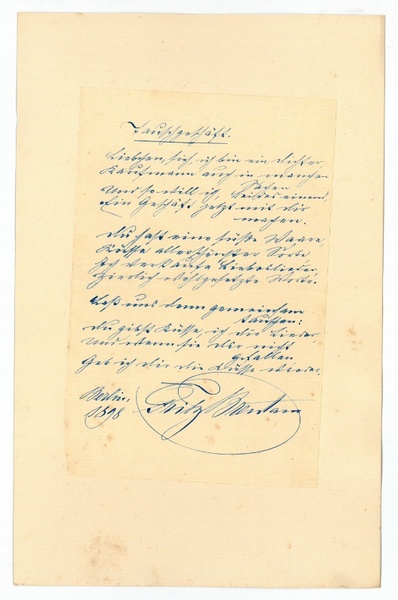 Tauschgeschäft.
Liebchen, sieh, ich bin ein Dichter
Kaufmann auch in manchen
Sachen
Und so will ich, beides einend,
Ein Geschäft jetzt mit dir
machen.
Du hast eine süße Waare
Küsse allerschönster Sorte
Ich verkaufe Liebeslieder,
Zierlich wohlgesetzte Worte.
Laß uns denn gemeinsam
tauschen:
Du giebst Küsse, ich die Lieder
Und wenn sie dir nicht
gefallen
Geb ich dir die Küsse wieder.
Berlin,
1898.
Fritz